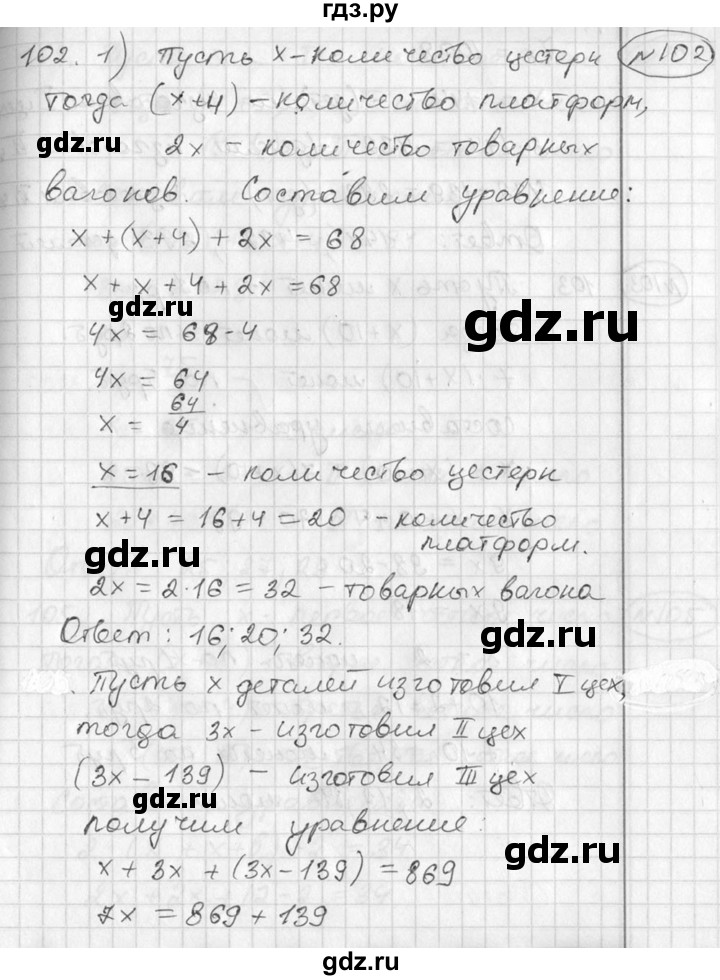 гдз.ру
102. 1) Пусть x - количество цестерн №102
тогда (x+4) - количество платформ,
gdz.ru
2x - количество товарных
gdz.ru
вагонов. Составим уравнение:
x + (x+4) + 2x = 68
x + x + 4 + 2x = 68
gdz.ru
gdz.ru
4x = 68-4
4x = 64
x = 64/4
x = 16 - количество цестерн
x+4 = 16+4 = 20 - количество
платформ.
gdz.ru
2x = 2·16 = 32 - товарных вагона
gdz.ru
Ответ: 16; 20; 32.
Пусть x деталей изготовил I цех,
тогда 3x - изготовил II цех
(3x - 139) - изготовил III цех
gdz.ru
получим уравнение:
gdz.ru
x + 3x + (3x-139) = 869
7x = 869 + 139